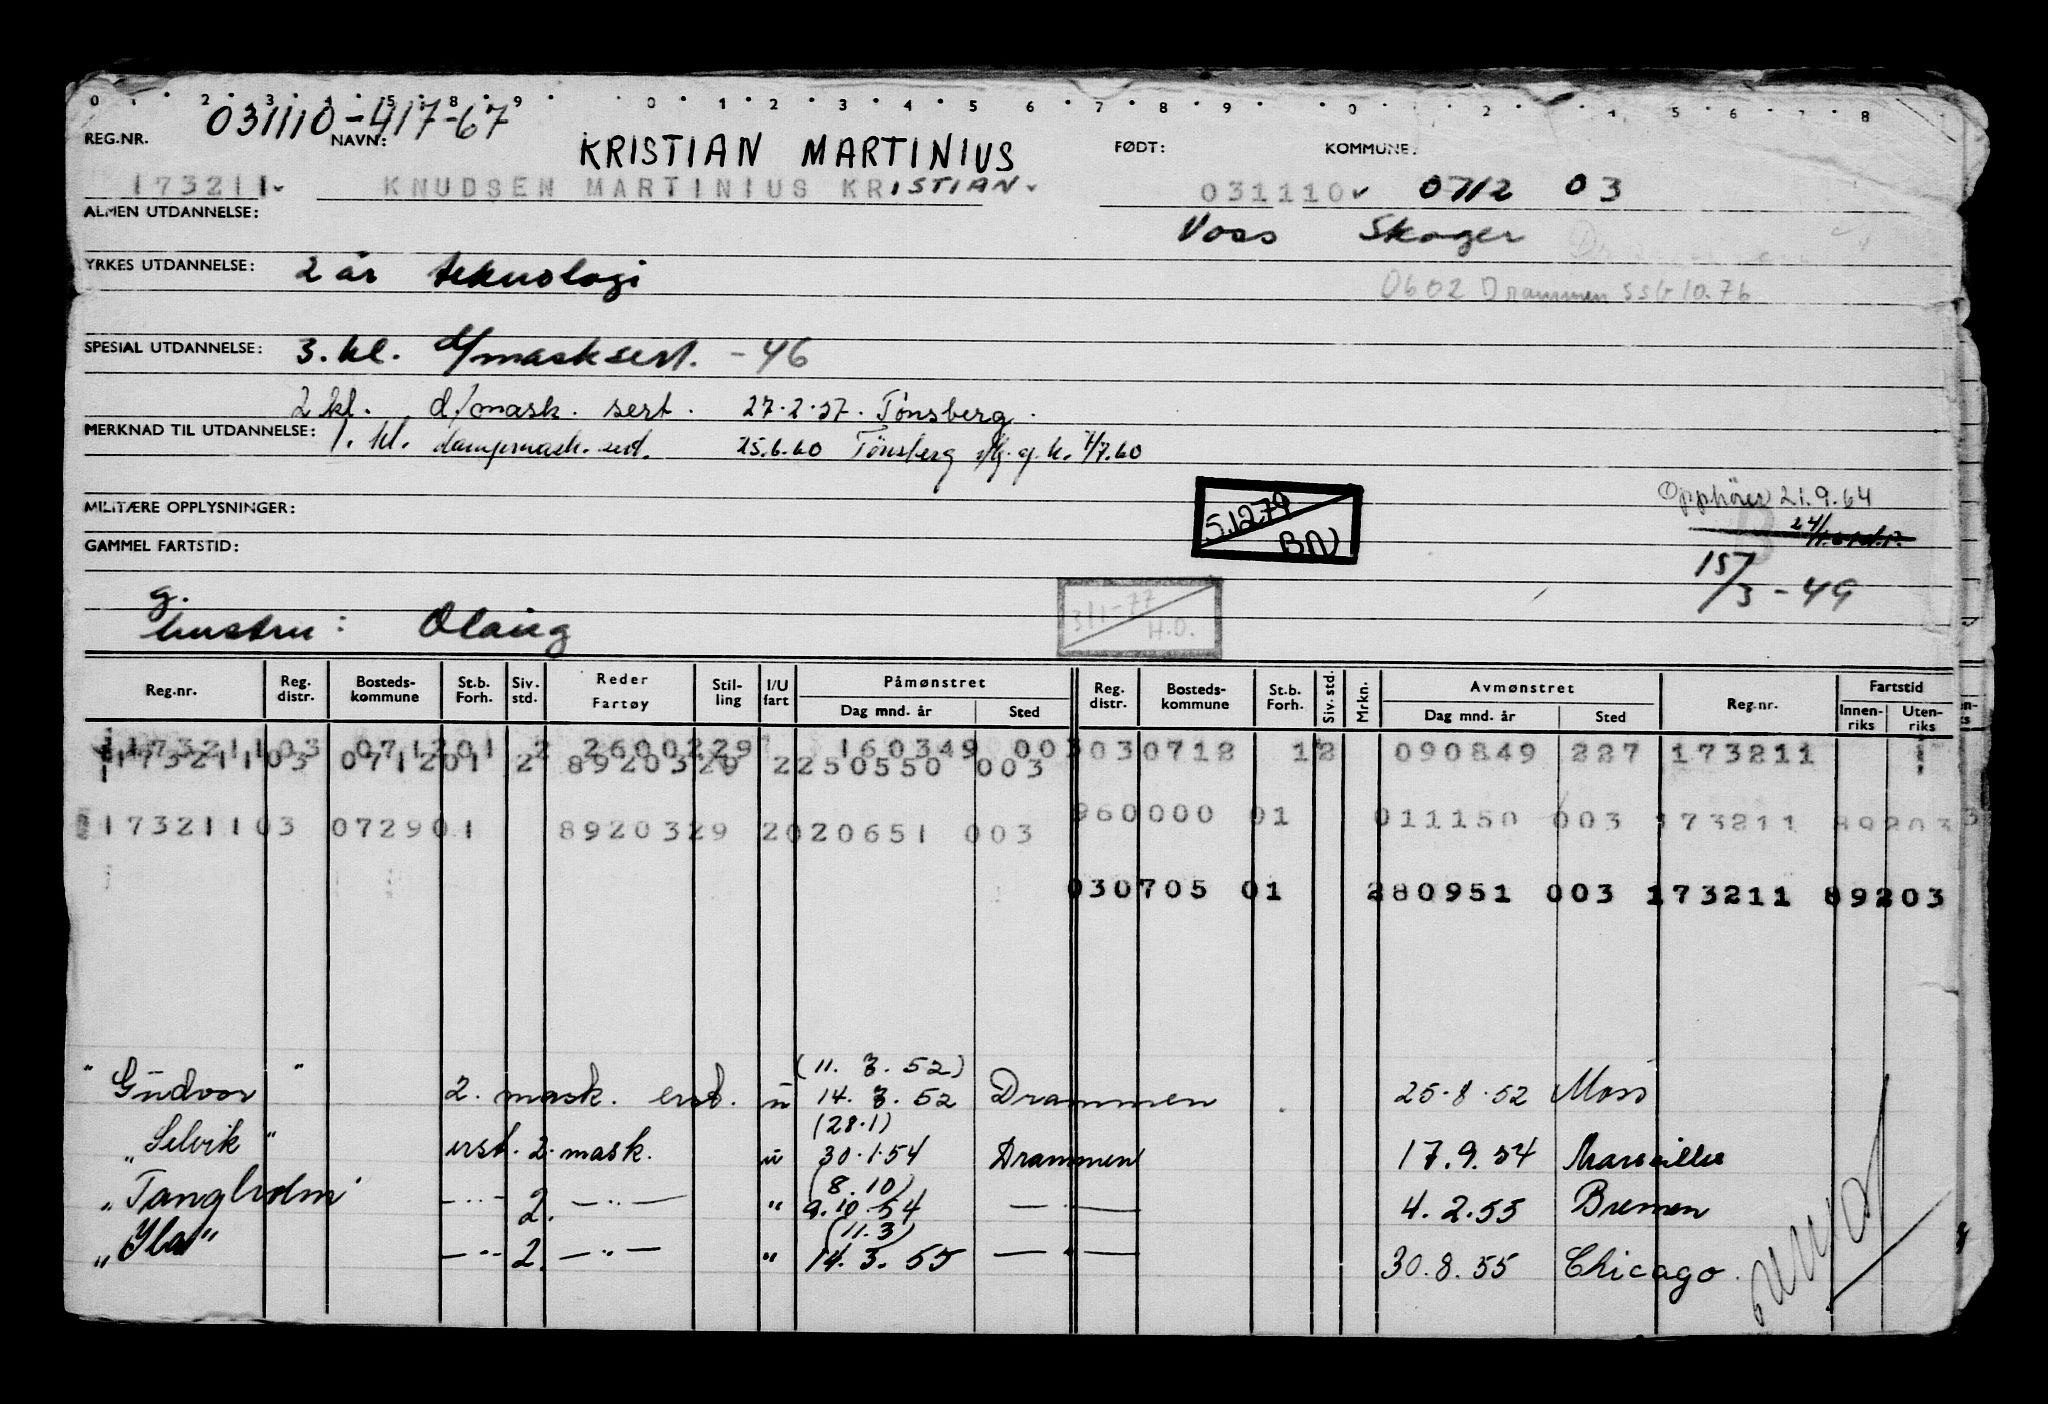 0 2 3 5 8 9 0 1 2 3 4 5 6 7 8 9 0 2 4 5 6 7 8
031110-417-67
REG.NR. NAVN: KRISTIAN MARTINIUS FØDT: KOMMUNE:
173211 KNUDSEN MARTINIUS KRISTIAN 031110 0712 03
ALMEN UTDANNELSE: Voss Skoger
YRKES UTDANNELSE: 2 år teknologi
0602 Drammen SSB 10.76
SPESIAL UTDANNELSE: 3. kl. d/mask sert. -46
2 kl. d/mask. sert. 27.2.57. Tønsberg.
MERKNAD TIL UTDANNELSE: 1. kl. dampmask. sert. 25.6.60 Tønsberg 7/7.60
Opphører 21.9.64
MILITÆRE OPPLYSNINGER: 5.12.79
BN
GAMMEL FARTSTID:
15/3-49
g. 3/1-77
hustru: Olaug H.O.
Reg.nr. Reg. distr. Bosteds-kommune St.b. Forh. Siv. std. Reder Fartøy Stil-ling I/U fart Påmønstret Dag mnd. år Sted Reg. distr. Bosteds-kommune St.b. Forh. Siv. std. Mrkn. Avmønstret Dag mnd. år Sted Reg.nr. Fartstid Innen-riks Uten-riks
173211 03 0712 01 2 2600229 160349 003 03 0712 12 090849 227 173211
173211 03 0712 01 2 8920329 2 250550 003
960000 01 011150 003 173211 89203
173211 03 0729 01 8920329 2 020651 003
030705 01 280951 003 173211 89203
(11. 3. 52)
"Gudvor" 2. mask. erst. u 14. 3. 52 Drammen 25.8.52 Moss
(28.1)
"Selvik" erst. 2. mask. u 30.1.54 Drammen 17.9.54 Marseilles
(8.10)
"Tangholm" —"— 2. —"— " 9.10.54 —"— 4.2.55 Bremen
(11.3)
"Yla" —"— 2. —"— " 14.3.55 —"— 30.8.55 Chicago.